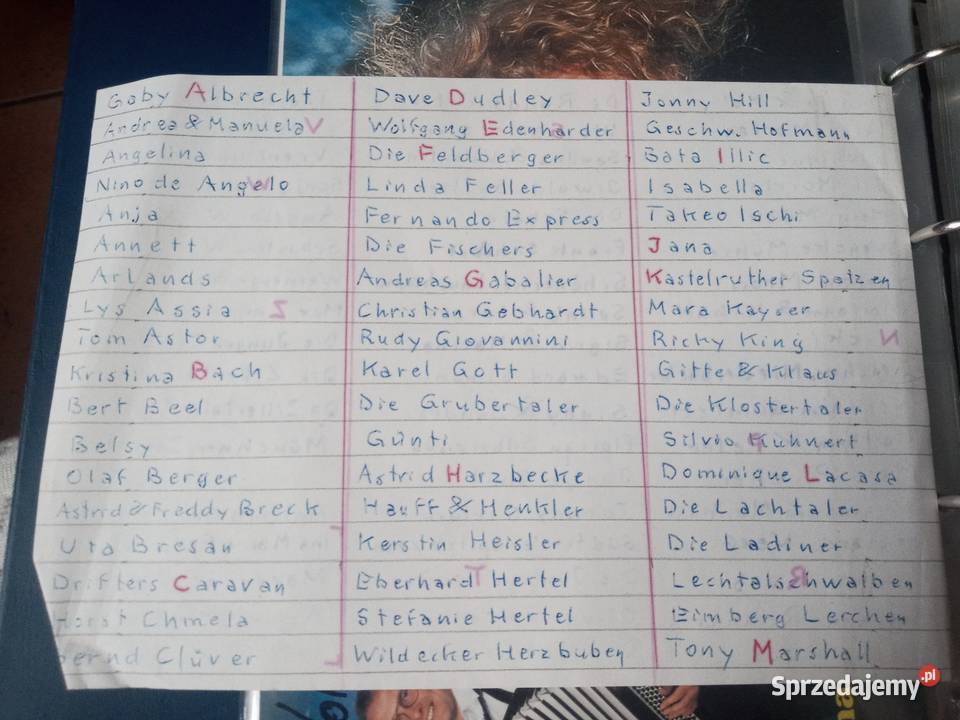 Gaby Albrecht
Andrea & Manuela
Angelina
Nino de Angelo
Anja
Annett
Arlands
Lys Assia
Tom Astor
Kristina Bach
Bert Beel
Belsy
Olaf Berger
Astrid & Freddy Breck
Uta Bresan
Drifters Caravan
Horst Chmela
Bernd Clüver
Dave Dudley
Wolfgang Edenharder
Die Feldberger
Linda Feller
Fernando Express
Die Fischers
Andreas Gabalier
Christian Gebhardt
Rudy Giovannini
Karel Gott
Die Grubertaler
Günti
Astrid Harzbecke
Hauff & Henkler
Kerstin Heisler
Eberhard Hertel
Stefanie Hertel
Wildecker Herzbuben
Jonny Hill
Geschw. Hofmann
Bata Illic
Isabella
Takeo Ischi
Jana
Kastelruther Spatzen
Mara Kayser
Ricky King
Gitte & Klaus
Die Klostertaler
Silvio Kuhnert
Dominique Lacasa
Die Lachtaler
Die Ladiner
Lechtalschwalben
Lerchen
Tony Marshall
Sprzedajemy.pl